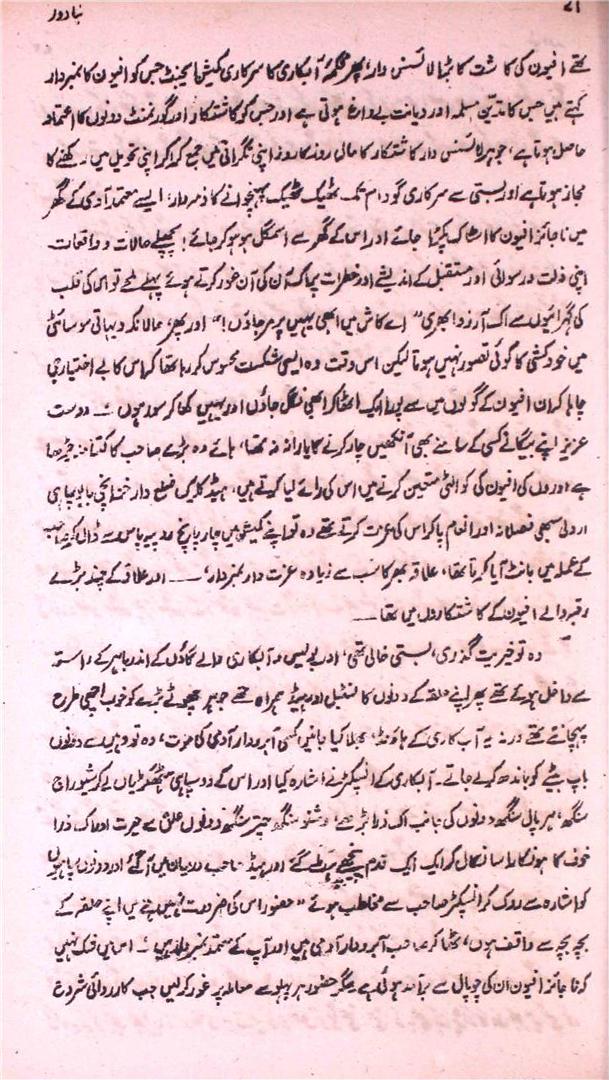 ۲۱ نیا دور
تھے افیون کی کاشت کا بڑا لائسنس دار، پھر محکمۂ آبکاری کا سرکاری کمیشن ایجنٹ جس کو افیون کا نمبردار
کہتے ہیں جس کا تدیّن مسلمہ اور دیانت بے داغ ہوتی ہے اور جس کو کاشتکار اور گورنمنٹ دونوں کا اعتماد
حاصل ہوتا ہے، جو ہر لائسنس دار کاشتکار کا مال روز کا روز اپنی نگرانی میں جمع کرا کر اپنی تحویل میں رکھنے کا
مجاز ہوتا ہے اور بستی سے سرکاری گودام تک ٹھیک ٹھیک پہنچوانے کا ذمہ دار، ایسے معتمد آدمی کے گھر
میں ناجائز افیون کا اسٹاک پکڑا جائے اور اس کے گھر سے اسمگل ہو ہو کر جائے! پچھلے حالات و واقعات
اپنی ذلت و رسوائی اور مستقبل کے اندیشے اور خطرات پر اک آن غور کرتے ہوئے پہلے لمحے تو اس کی قلب
کی گہرائیوں سے اک آرزو ابھری "اے کاش میں ابھی یہیں پر مر جاؤں!" اور پھر، حالانکہ دیہاتی سوسائٹی
میں خودکشی کا کوئی تصور نہیں ہوتا لیکن اس وقت وہ ایسی شکست محسوس کر رہا تھا کہ اس کا بے اختیار جی
چاہا کہ ان افیون کے گولوں میں سے پورا ایک اٹھا کر ابھی نگل جاؤں اور یہیں کھا کر سو رہوں ۔ دوست
عزیز اپنے بیگانے کسی کے سامنے بھی آنکھیں چار کرنے کا یارا نہ تھا، ہائے وہ بڑے صاحب کا کتنا منہ چڑھا
ہے اوروں کی افیون کی کوالٹی متعین کرنے میں اس کی رائے لیا کرتے ہیں، ہیڈ کلرک ضلع دار خزانچی بابو سپاہی
اردلی سبھی فصلانہ اور انعام پا کر اس کی عزت کرتے تھے وہ تو اپنے کمیشن میں چار پانچ روپیہ پاس سے ڈال کر
کے عملہ میں بانٹ آیا کرتا تھا، علاقہ بھر کا سب سے زیادہ عزت دار نمبردار، —— اور علاقے کے چند بڑے
رقبہ والے افیون کے کاشتکاروں میں تھا ——
وہ تو خیریت گذری، بستی خالی تھی، اور پولیس و آبکاری والے گاؤں کے اندر باہر کے راستہ
سے داخل ہوئے تھے پھر اپنے حلقہ کے دونوں کانسٹبل اور ہیڈ ہمراہ تھے جو ہر چھوٹے بڑے کو خوب اچھی طرح
پہچانتے تھے ورنہ یہ آبکاری کے ہاونڈ، بھلا کیا جانیں کسی آبرودار آدمی کی عزت، وہ تو وہیں سے دونوں
باپ بیٹے کو باندھ کر لے جاتے۔ آبکاری کے انسپکٹر نے اشارہ کیا اور اس کے دو سپاہی ہتھکڑیاں لے کر شیوراج
سنگھ، ہرپال سنگھ دونوں کی جانب اک ذرا بڑھے، وشنو سنگھ چتر سنگھ دونوں حلق سے حیرت اور اک ذرا
خوف کا ہونکارا سا نکال کر ایک ایک قدم پیچھے ہٹ گئے اور ہیڈ صاحب درمیان میں آ گئے اور دونوں سپاہیوں
کو اشارہ سے روک کر انسپکٹر صاحب سے مخاطب ہوئے "حضور اس کی ضرورت نہیں ہے میں اپنے حلقہ کے
بچہ بچہ سے واقف ہوں، ٹھاکر صاحب آبرودار آدمی ہیں اور آپ کے معتمد نمبردار ہیں ۔ اس میں شک نہیں
کہ ناجائز افیون ان کی چوپال سے برآمد ہوئی ہے مگر حضور ہر پہلو سے معاملہ پر غور کر لیں جب کارروائی شروع